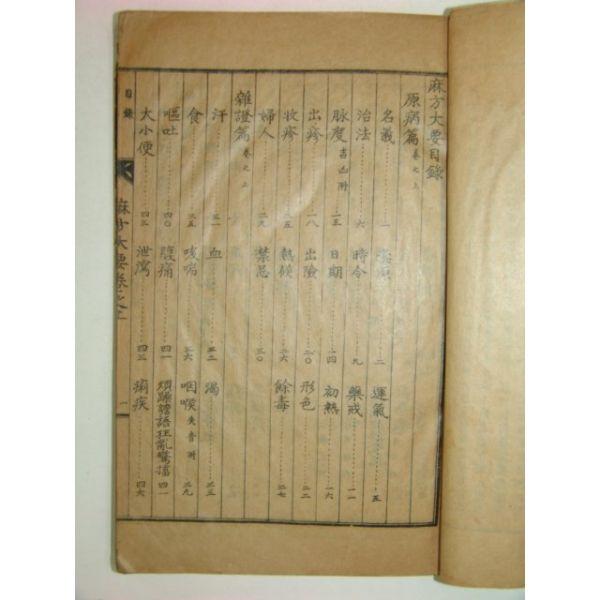 麻方大要目錄
原病篇 卷之上
名義 一 二 運氣 五
治法 六 時令 九 藥戒 一一
脉度 吉凶附 一三 日期 一四 初熱 一六
出疹 一八 出險 二〇 形色 二二
收疹 二五 熱候 二六 餘毒 二七
婦人 二九 禁忌 三〇
雜證篇 卷之上
汗 三一 血 三二 渴 三三
食 三五 咳喘 三六 咽喉 失音附 三九
嘔吐 四〇 腹痛 四一 煩躁譫語狂亂驚搐 四一
大小便 四三 泄瀉 四三 痢疾 四六
目錄
麻方大要卷之上 一